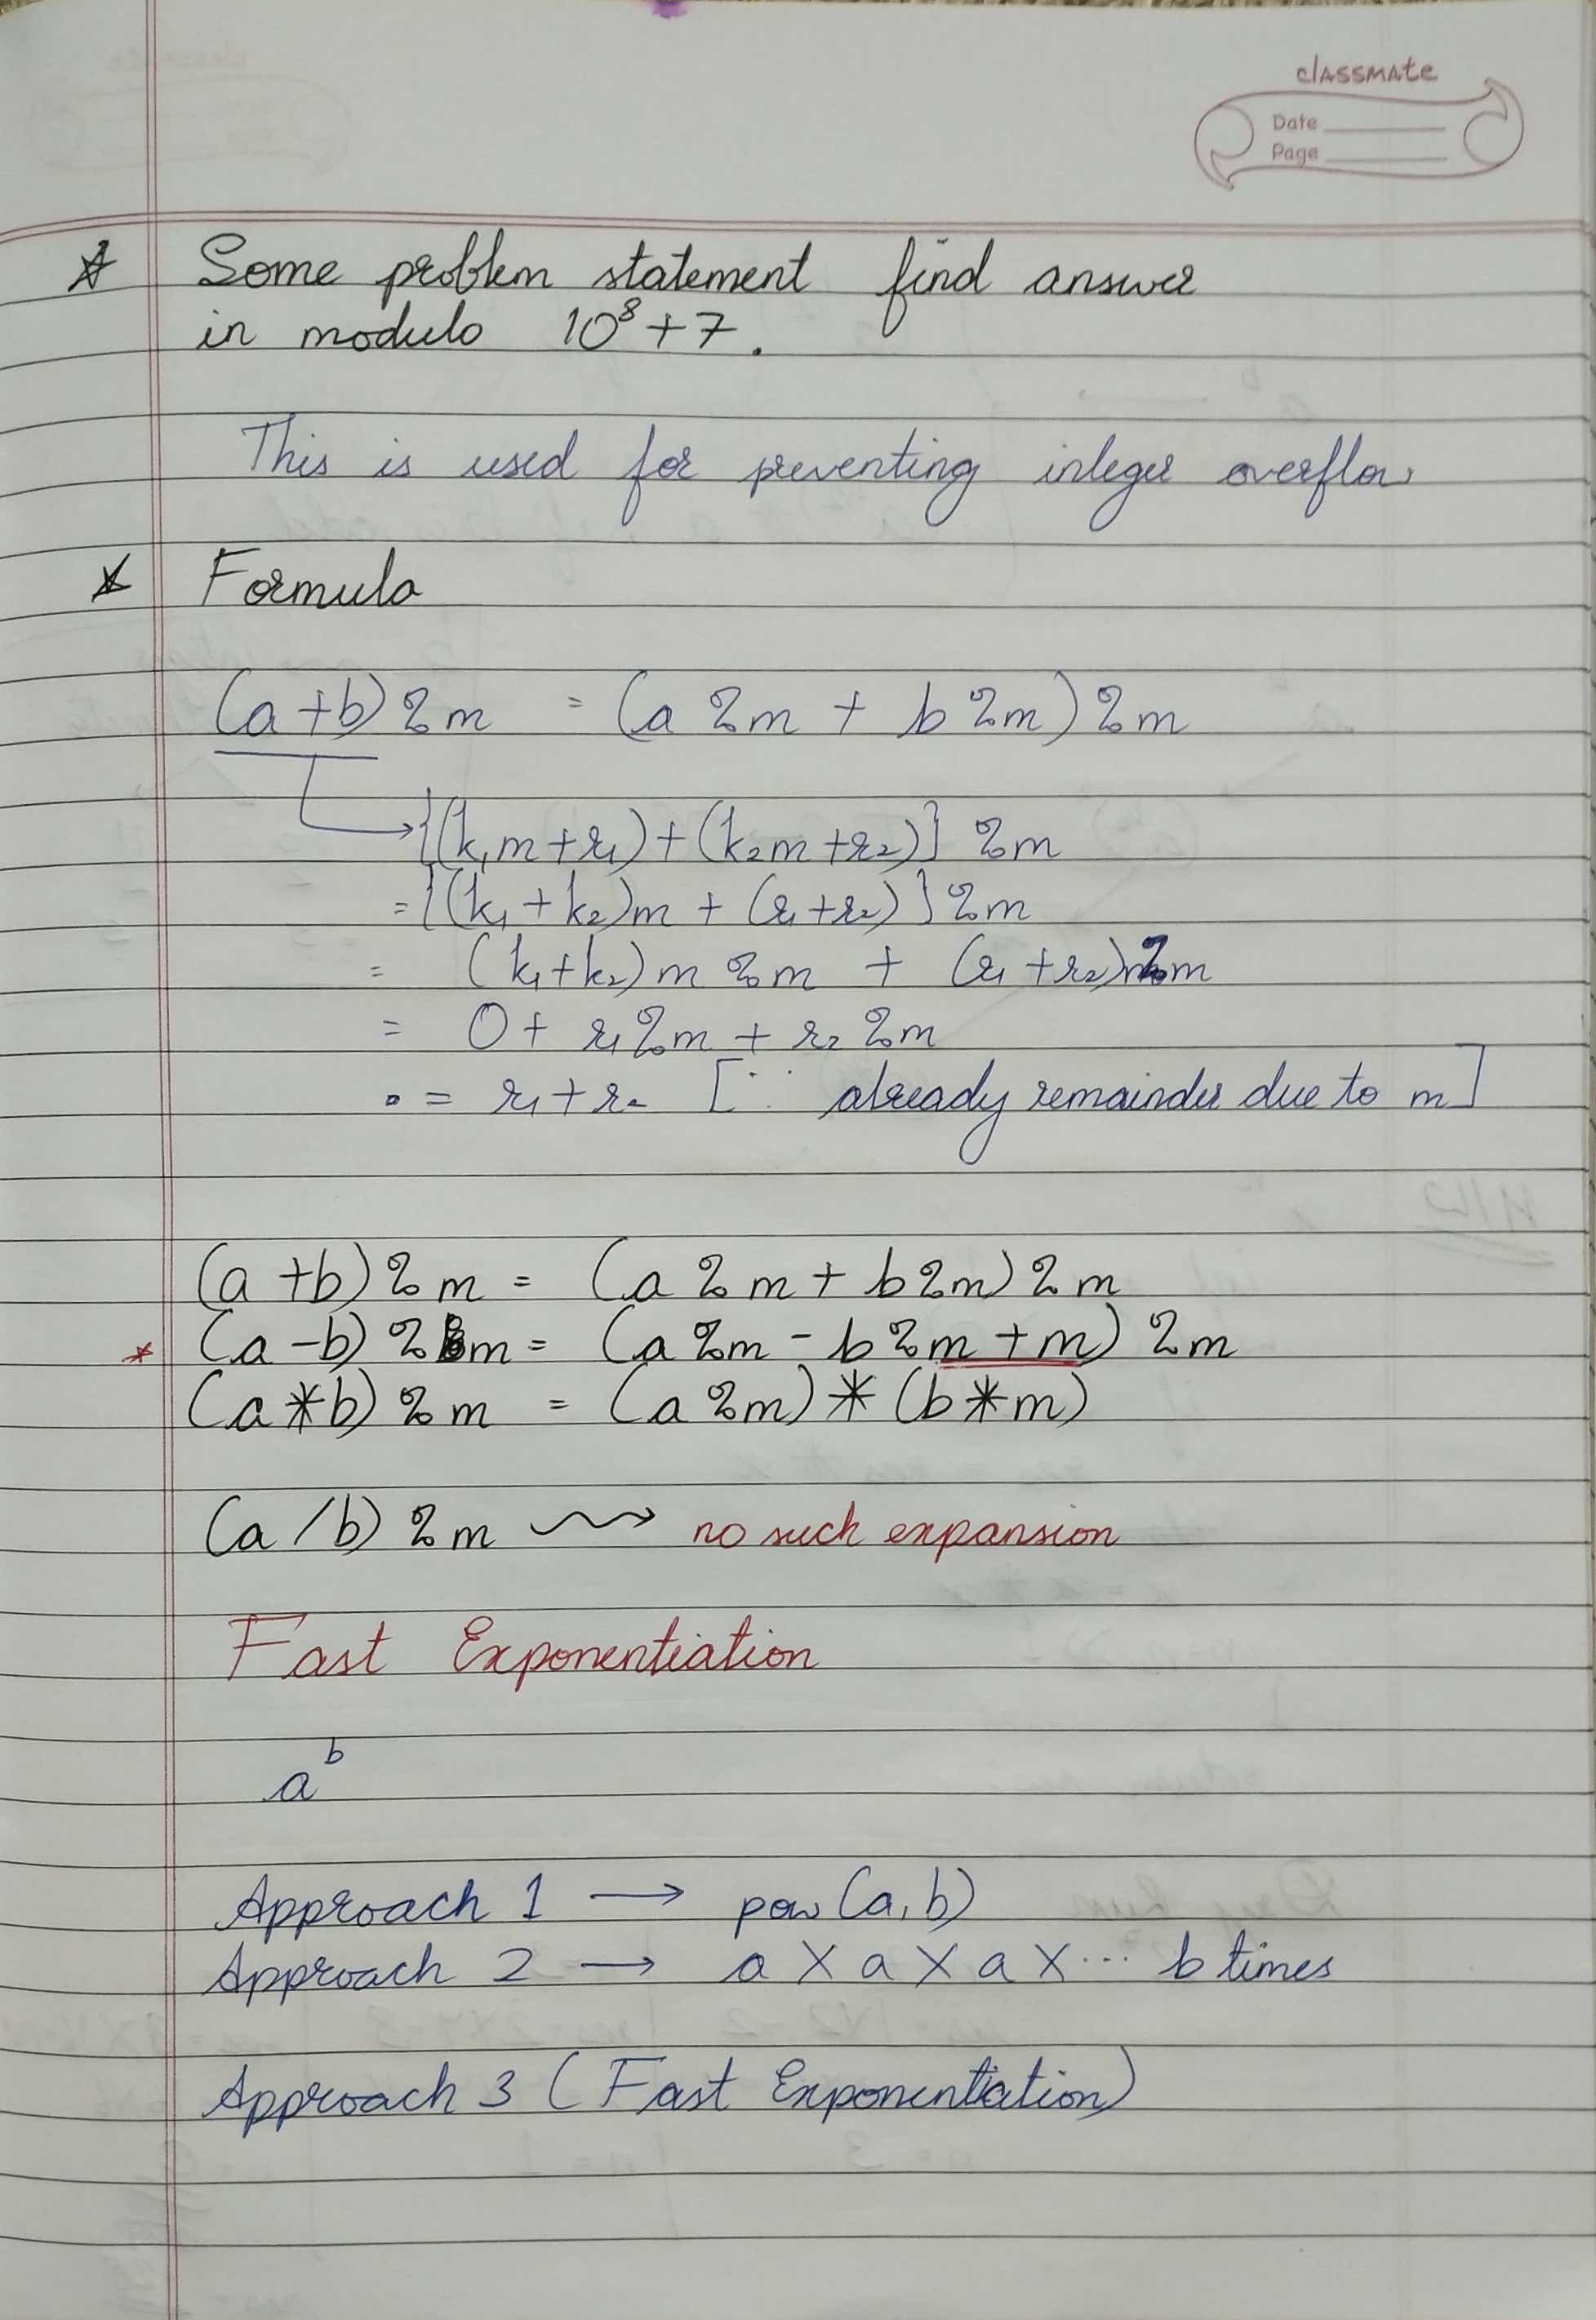 classmate
Date
Page
☆ Some problem statement find answer
in modulo 10⁸+7.
This is used for preventing integer overflow
☆ Formula
(a+b)%m = (a%m + b%m)%m
{(k₁m+r₁)+(k₂m+r₂)}%m
={(k₁+k₂)m + (r₁+r₂)}%m
= (k₁+k₂)m%m + (r₁+r₂)%m
= 0 + r₁%m + r₂%m
= r₁+r₂ [∵ already remainder due to m]
(a+b)%m = (a%m + b%m)%m
* (a-b)%m = (a%m - b%m+m)%m
(a*b)%m = (a%m)*(b*m)
(a/b)%m ⇝ no such expansion
Fast Exponentiation
aᵇ
Approach 1 → pow(a,b)
Approach 2 → a×a×a×... b times
Approach 3 (Fast Exponentiation)